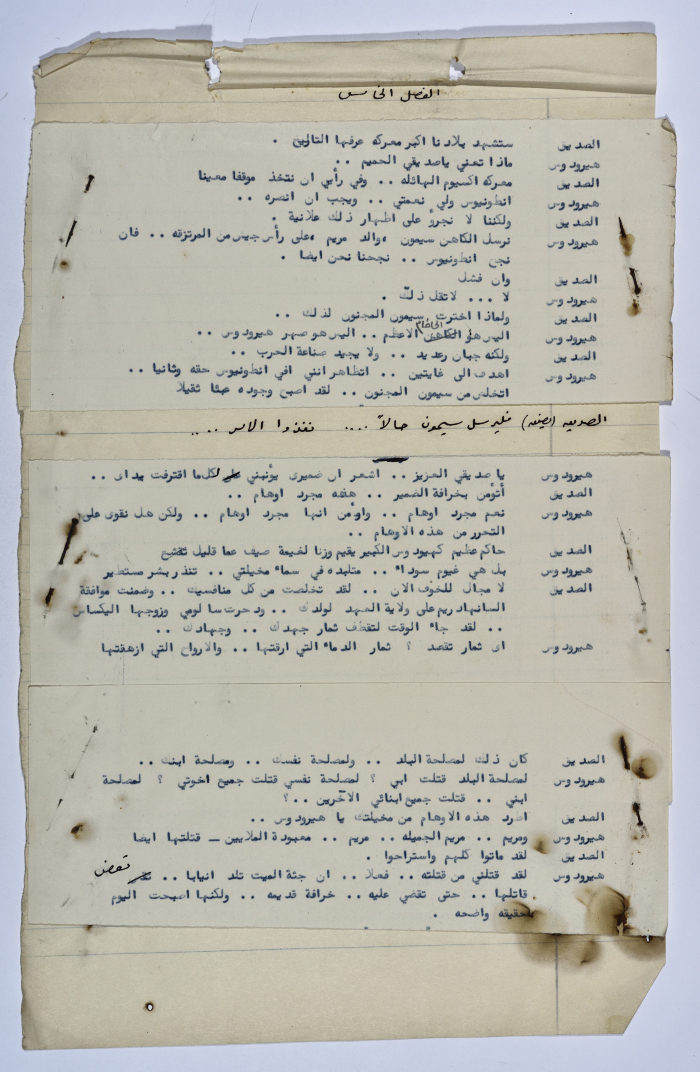 الفصل الخامس
الصديق ستشهد بلادنا اكبر معركه عرفها التاريخ .
هيرودوس ماذا تعني ياصديقي الحميم ..
الصديق معركه اكسيوم الهائله .. وفي رأيي ان نتخذ موقفا معينا
هيرودوس انطونيوس ولي نعمتي .. ويجب ان انصره ..
الصديق ولكننا لا نجرؤ على اظهار ذلك علانية .
هيرودوس نرسل الكاهن سيمون ،والد مريم ،على رأس جيش من المرتزقه .. فان
نجح انطونيوس .. نجحنا نحن ايضا .
الصديق وان فشل
هيرودوس لا ... لاتقل ذلك .
الصديق ولماذا اخترت سيمون المجنون لذلك ..
هيرودوس اليس هو الحاخام الاعظم .. اليس هو صهر هيرودوس ..
الصديق ولكنه جبان رعديد .. ولا يجيد صناعة الحرب ..
هيرودوس اهدف الى غايتين .. اتظاهر انني افي انطونيوس حقه وثانيا ..
اتخلص من سيمون المجنون .. لقد اصبح وجوده عبئا ثقيلا
الصديق فليرسل سيمون حالاً .... نفذوا الامر ....
هيرودوس يا صديقي العزيز .. اشعر ان ضميرى يؤنبني لكل ما اقترفت يداى ..
الصديق أتؤمن بخرافة الضمير .. هذه مجرد اوهام ..
هيرودوس نعم مجرد اوهام .. واؤمن انها مجرد اوهام .. ولكن هل نقوى على
التحرر من هذه الاوهام ..
الصديق حاكم عظيم كهيرودوس الكبير يقيم وزنا لغيمة صيف عما قليل تنقشع
هيرودوس بل هي غيوم سوداء .. متلبده في سماء مخيلتي .. تنذر بشر مستطير
الصديق لا مجال للخوف الان .. لقد تخلصت من كل منافسيك .. وضمنت موافقة
السانهادريم على ولاية العهد لولدك .. ودحرت سالومي وزوجها اليكساس
.. لقد جاء الوقت لتقطف ثمار جهدك .. وجهادك ..
هيرودوس اى ثمار تقصد ؟ ثمار الدماء التي ارقتها .. والارواح التي ازهقتها
الصديق كان ذلك لمصلحة البلد .. ولمصلحة نفسك .. ومصلحة ابنك ..
هيرودوس لمصلحة البلد قتلت ابي ؟ لمصلحة نفسي قتلت جميع اخوتي ؟ لمصلحة
ابني .. قتلت جميع ابنائي الآخرين ..؟
الصديق اطرد هذه الاوهام من مخيلتك يا هيرودوس ..
هيرودوس ومريم .. مريم الجميله .. مريم .. معبودة الملايين ــ قتلتها ايضا
الصديق لقد ماتوا كلهم واستراحوا .
هيرودوس لقد قتلني من قتلته .. فعلا .. ان جثة الميت تلد انيابا .. تعض
قاتلها .. حتى تقضي عليه .. خرافة قديمه .. ولكنها اصبحت اليوم
حقيقه واضحه .